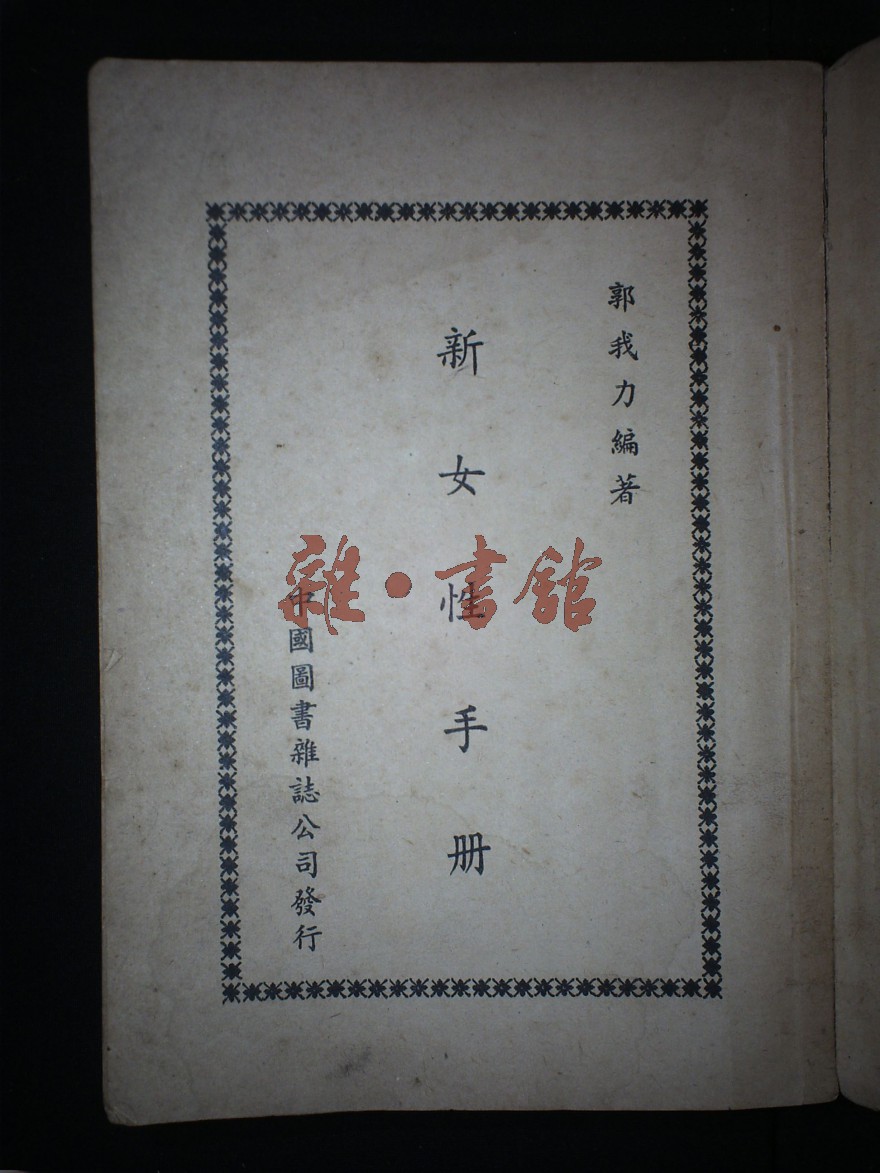 郭我力編著
新女性手册
中國圖書雜誌公司發行
雜·書館